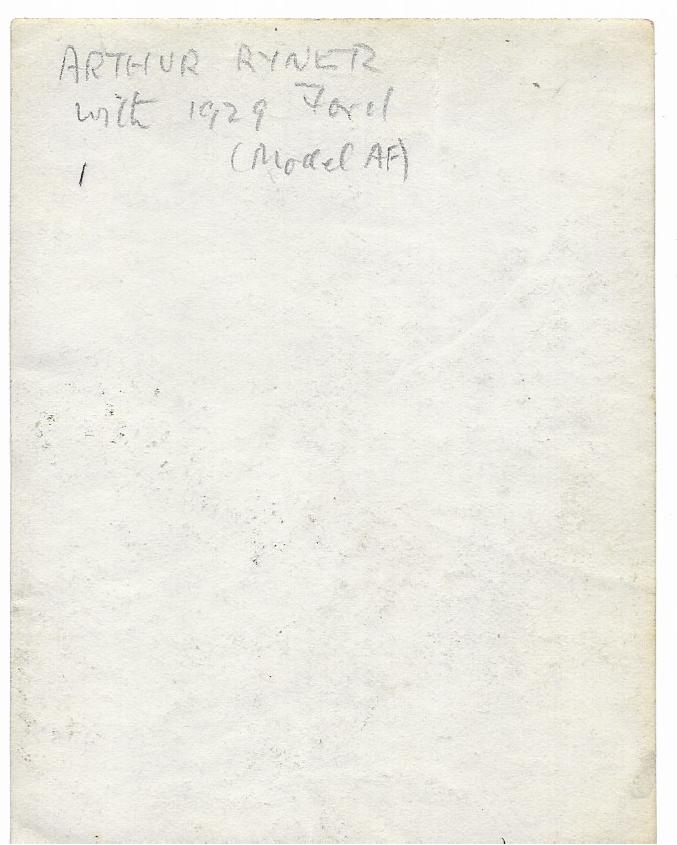 ARTHUR RYNER
with 1929 Ford
(Model AF)